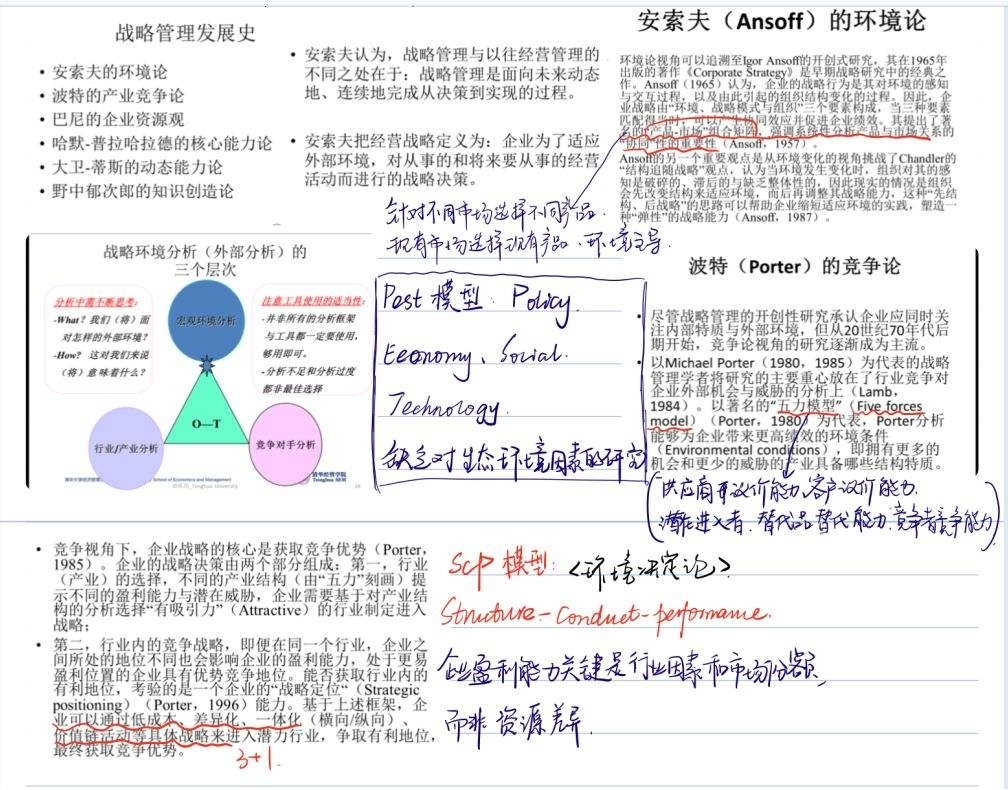 战略管理发展史
• 安索夫的环境论
• 波特的产业竞争论
• 巴尼的企业资源观
• 哈默-普拉哈拉德的核心能力论
• 大卫-蒂斯的动态能力论
• 野中郁次郎的知识创造论
• 安索夫认为，战略管理与以往经营管理的
不同之处在于：战略管理是面向未来动态
地、连续地完成从决策到实现的过程。
• 安索夫把经营战略定义为：企业为了适应
外部环境，对从事的和将来要从事的经营
活动而进行的战略决策。
安索夫（Ansoff）的环境论
环境论视角可以追溯至Igor Ansoff的开创式研究，其在1965年
出版的著作《Corporate Strategy》是早期战略研究中的经典之
作。Ansoff（1965）认为，企业的战略行为是其对环境的感知
与交互过程，以及由此引起的组织结构变化的过程。因此，企
业战略由“环境、战略模式与组织”三个要素构成，当三种要素
匹配得当时，可以产生协同效应并促进企业绩效。其提出了著
名的“产品-市场”组合矩阵，强调系统性分析产品与市场关系的
“协同”性的重要性（Ansoff，1957）。
Ansoff的另一个重要观点是从环境变化的视角挑战了Chandler的
“结构追随战略”观点，认为当环境发生变化时，组织对其的感
知是破碎的、滞后的与缺乏整体性的，因此现实的情况是组织
会先改变结构来适应环境，而后再调整其战略能力，这种“先结
构、后战略”的思路可以帮助企业缩短适应环境的实践，塑造一
种“弹性”的战略能力（Ansoff，1987）。
针对不同市场选择不同产品.
现有市场选择现有产品.环境主导.
战略环境分析（外部分析）的
三个层次
分析中需不断思考：
-What？我们（将）面
对怎样的外部环境？
-How？ 这对我们来说
（将）意味着什么？
宏观环境分析
注意工具使用的适当性：
-并非所有的分析框架
与工具都一定要使用，
够用即可。
-分析不足和分析过度
都非最佳选择
O—T
行业/产业分析
竞争对手分析
School of Economics and Management
清华经管学院
Tsinghua SEM
Pest 模型: Policy.
Economy、Social.
Technology.
缺乏对生态环境因素的研究
波特（Porter）的竞争论
• 尽管战略管理的开创性研究承认企业应同时关
注内部特质与外部环境，但从20世纪70年代后
期开始，竞争论视角的研究逐渐成为主流。
• 以Michael Porter（1980，1985）为代表的战略
管理学者将研究的主要重心放在了行业竞争对
企业外部机会与威胁的分析上（Lamb，
1984）。以著名的“五力模型”（Five forces
model）（Porter，1980）为代表，Porter分析
能够为企业带来更高绩效的环境条件
（Environmental conditions），即拥有更多的
机会和更少的威胁的产业具备哪些结构特质。
供应商再议价能力,客户议价能力.
潜在进入者.替代品替代能力.竞争者竞争能力
• 竞争视角下，企业战略的核心是获取竞争优势（Porter，
1985）。企业的战略决策由两个部分组成：第一，行业
（产业）的选择，不同的产业结构（由“五力”刻画）提
示不同的盈利能力与潜在威胁，企业需要基于对产业结
构的分析选择“有吸引力”（Attractive）的行业制定进入
战略；
• 第二，行业内的竞争战略，即便在同一个行业，企业之
间所处的地位不同也会影响企业的盈利能力，处于更易
盈利位置的企业具有优势竞争地位。能否获取行业内的
有利地位，考验的是一个企业的“战略定位“（Strategic
positioning）（Porter，1996）能力。基于上述框架，企
业可以通过低成本、差异化、一体化（横向/纵向）、
价值链活动等具体战略来进入潜力行业，争取有利地位，
最终获取竞争优势。
3+1.
Scp 模型: <环境决定论>.
Structure-conduct-performance.
企业盈利能力关键是行业因素和市场份额,
而非资源差异.